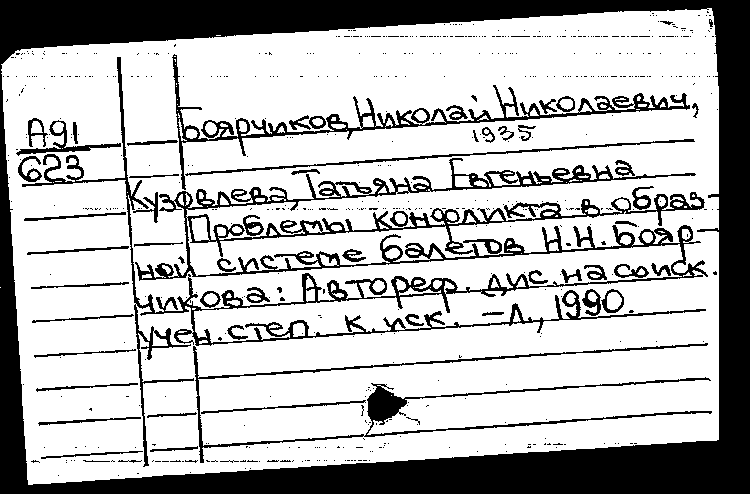 Боярчиков, Николай Николаевич,
1935
А91
623
Кузовлева, Татьяна Евгеньевна.
Проблемы конфликта в образ-
ной системе балетов Н.Н. Бояр-
чикова: Автореф. дис. на соиск.
учен. степ. к. иск. – Л., 1990.